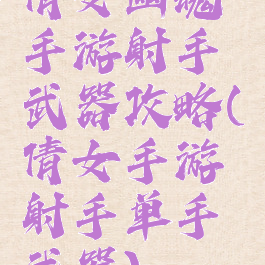 倩女幽魂
手游射手
武器攻略(
倩女手游
射手单手
武器)